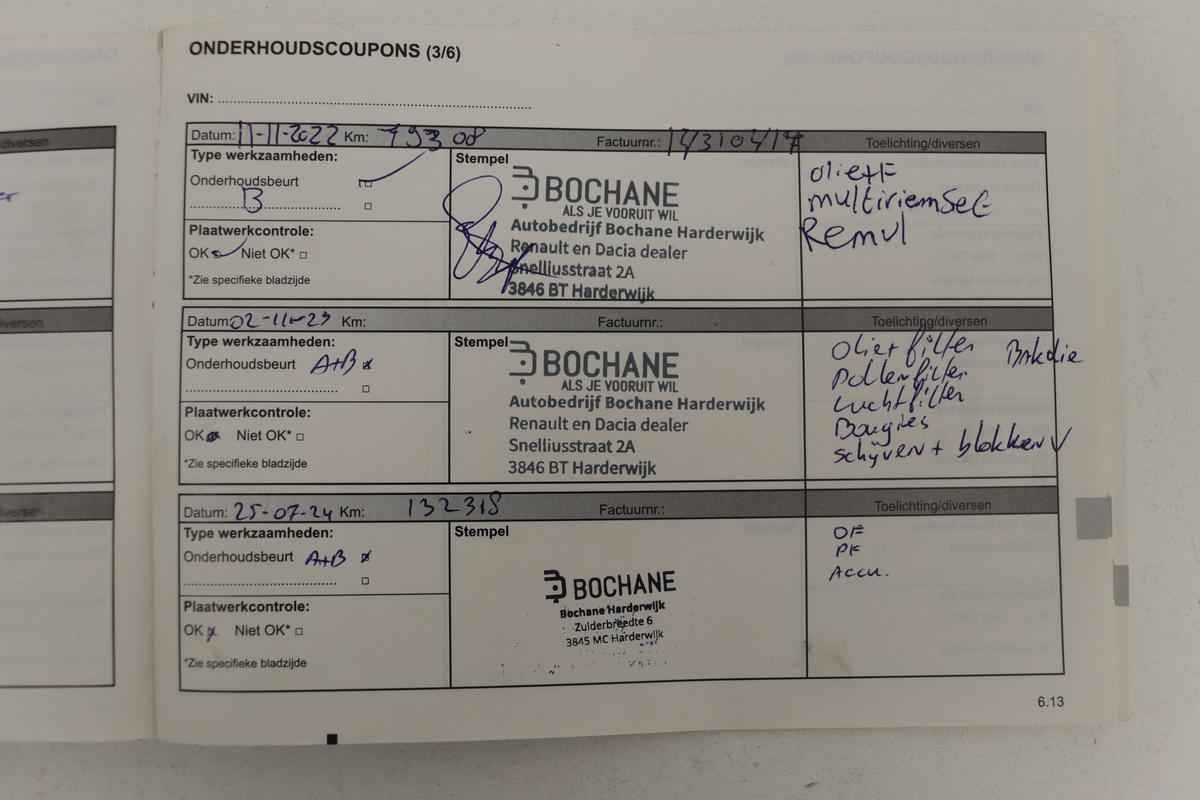 ONDERHOUDSCOUPONS (3/6)
VIN:
Datum: 11-11-2022 Km: 79308 Factuurnr.: 14310417 Toelichting/diversen
Type werkzaamheden:
Onderhoudsbeurt
B
Plaatwerkcontrole:
OK Niet OK*
*Zie specifieke bladzijde
Stempel
BOCHANE
ALS JE VOORUIT WIL
Autobedrijf Bochane Harderwijk
Renault en Dacia dealer
Snelliusstraat 2A
3846 BT Harderwijk
olie+F
multiriemset
Remul
Datum: 02-11-23 Km: Factuurnr.: Toelichting/diversen
Type werkzaamheden:
Onderhoudsbeurt A+B
Plaatwerkcontrole:
OK Niet OK*
*Zie specifieke bladzijde
Stempel
BOCHANE
ALS JE VOORUIT WIL
Autobedrijf Bochane Harderwijk
Renault en Dacia dealer
Snelliusstraat 2A
3846 BT Harderwijk
Olie+filter
Pollenfilter
Luchtfilter
Bougies
schijven + blokken
Datum: 25-07-24 Km: 132318 Factuurnr.: Toelichting/diversen
Type werkzaamheden:
Onderhoudsbeurt A+B
Plaatwerkcontrole:
OK Niet OK*
*Zie specifieke bladzijde
Stempel
BOCHANE
Bochane Harderwijk
Zuiderbreedte 6
3845 MC Harderwijk
OF
PF
Accu.
6.13